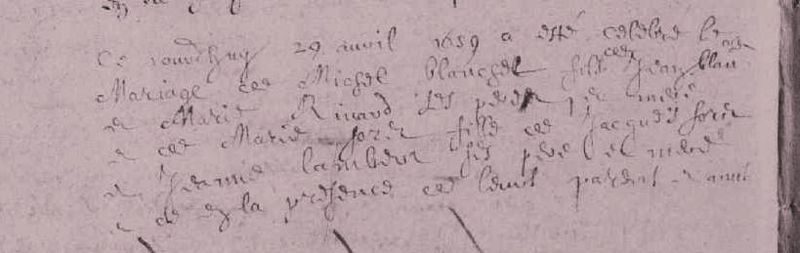 Ce jourdhuy 29 avvil 1659 a esté celebré le
Mariage de Michel blanchet fils de Jean blan
et Marie Rinard ses pere et mere
et de Marie forer fille de Jacques forer
et Jeanne lambert ses pere et mere
et ce en la presence de leurs parens et amis